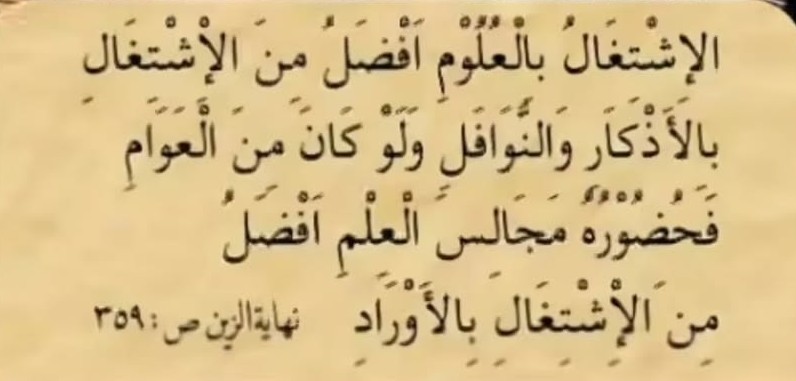 الإِشْتِغَالُ بِالْعُلُوْمِ اَفْضَلُ مِنَ الْإِشْتِغَالِ
بِالْأَذْكَارِ وَالنَّوَافِلِ وَلَوْ كَانَ مِنَ الْعَوَامِ
فَحُضُوْرُهُ مَجَالِسَ الْعِلْمِ اَفْضَلُ
مِنَ الْإِشْتِغَالِ بِالْأَوْرَادِ نهاية الزين ص : ٣٥٩